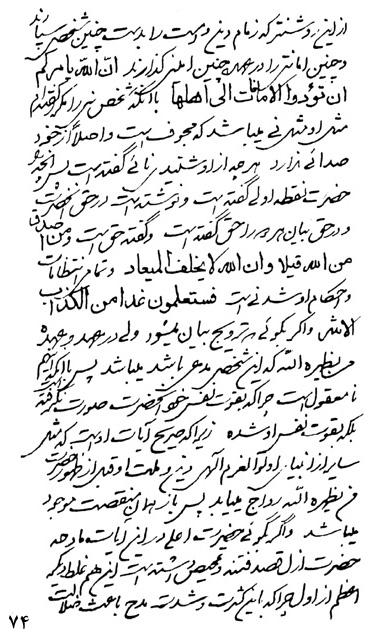 از این روشنتر که زمام دین و ملت را بدست چنین شخصی سپارند
و چنین امانتی را در عهده چنین امینی گذارند ان الله یامرکم
ان تؤدوا الامانات الی اهلها با آنکه شخص نی را مکرر گفته‌ام
مثل او مثل نی میباشد که مجوف است و اصلاً از خود
صدائی ندارد هر چه از او شنیدی نائی گفته است پس آنچه
حضرت نقطه اولی گفته است و نوشته است در حق آنحضرت
و در حق بیان همه را حق گفته است و گفته حق است و من اصدق
من الله قیلا و ان الله لا یخلف المیعاد و تمام انتظامات
و احکام او شدنی است فستعلمون غدا من الکذاب
الاشر و اگر بگوئی که ترویج بیان میشود ولی در صدد و عهده
من یظهره الله که این شخص مدعی باشد میباشد پس با آنکه این هم
نامعقول است چرا که بقوت نفس خود آنحضرت صورت نگرفته است
بلکه بقوت نفس او شده زیرا که صریح آیات اوست که مثل
سایر از انبیای اولوالعزم الهی دین و ملت او قبل از ظهور حضرت
من یظهره الله رواج میباید پس باز همان منقصت موجود
میباشد و اگر بگوئی حضرت اعلی در این آیات مادحه
حضرت ازل قصد فتنه و تمحیص داشته است این هم غلط دیگر
اعظم از اول چرا که باین کثرت و شدت مدح باعث ضلالت
۷۴